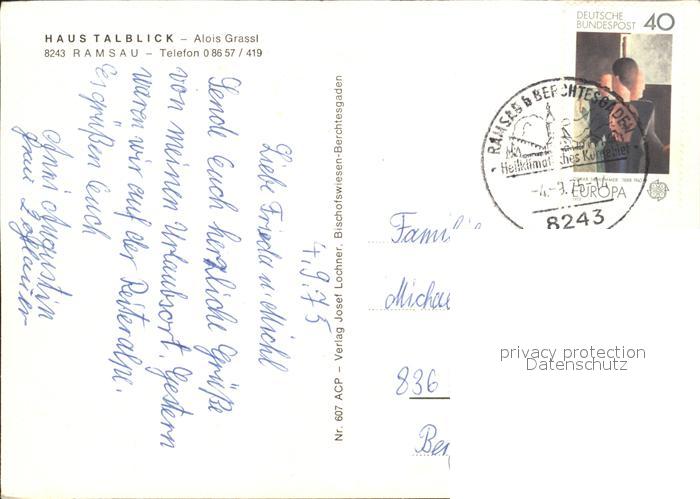 HAUS TALBLICK – Alois Grassl
8243 RAMSAU – Telefon 0 86 57 / 419
4.9.75
Liebe Frieda u. Michl
Sende Euch herzliche Grüße
von meinem Urlaubsort. Gestern
waren wir auf der Reiteralpe.
Es grüßen Euch
Anni Augustin
Frau
Nr. 607 ACP – Verlag Josef Lochner, Bischofswiesen-Berchtesgaden
DEUTSCHE
BUNDESPOST 40
EUROPA
RAMSAU b BERCHTESGADEN
Heilklimatisches Kurgebiet
-4.-9.75
8243
Famili
Michae
836
Ber
privacy protection
Datenschutz